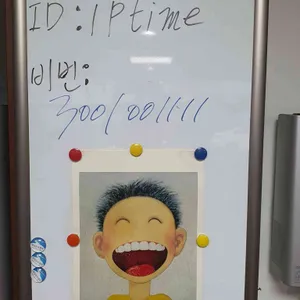 ID : IPtime
비번:
3001001111